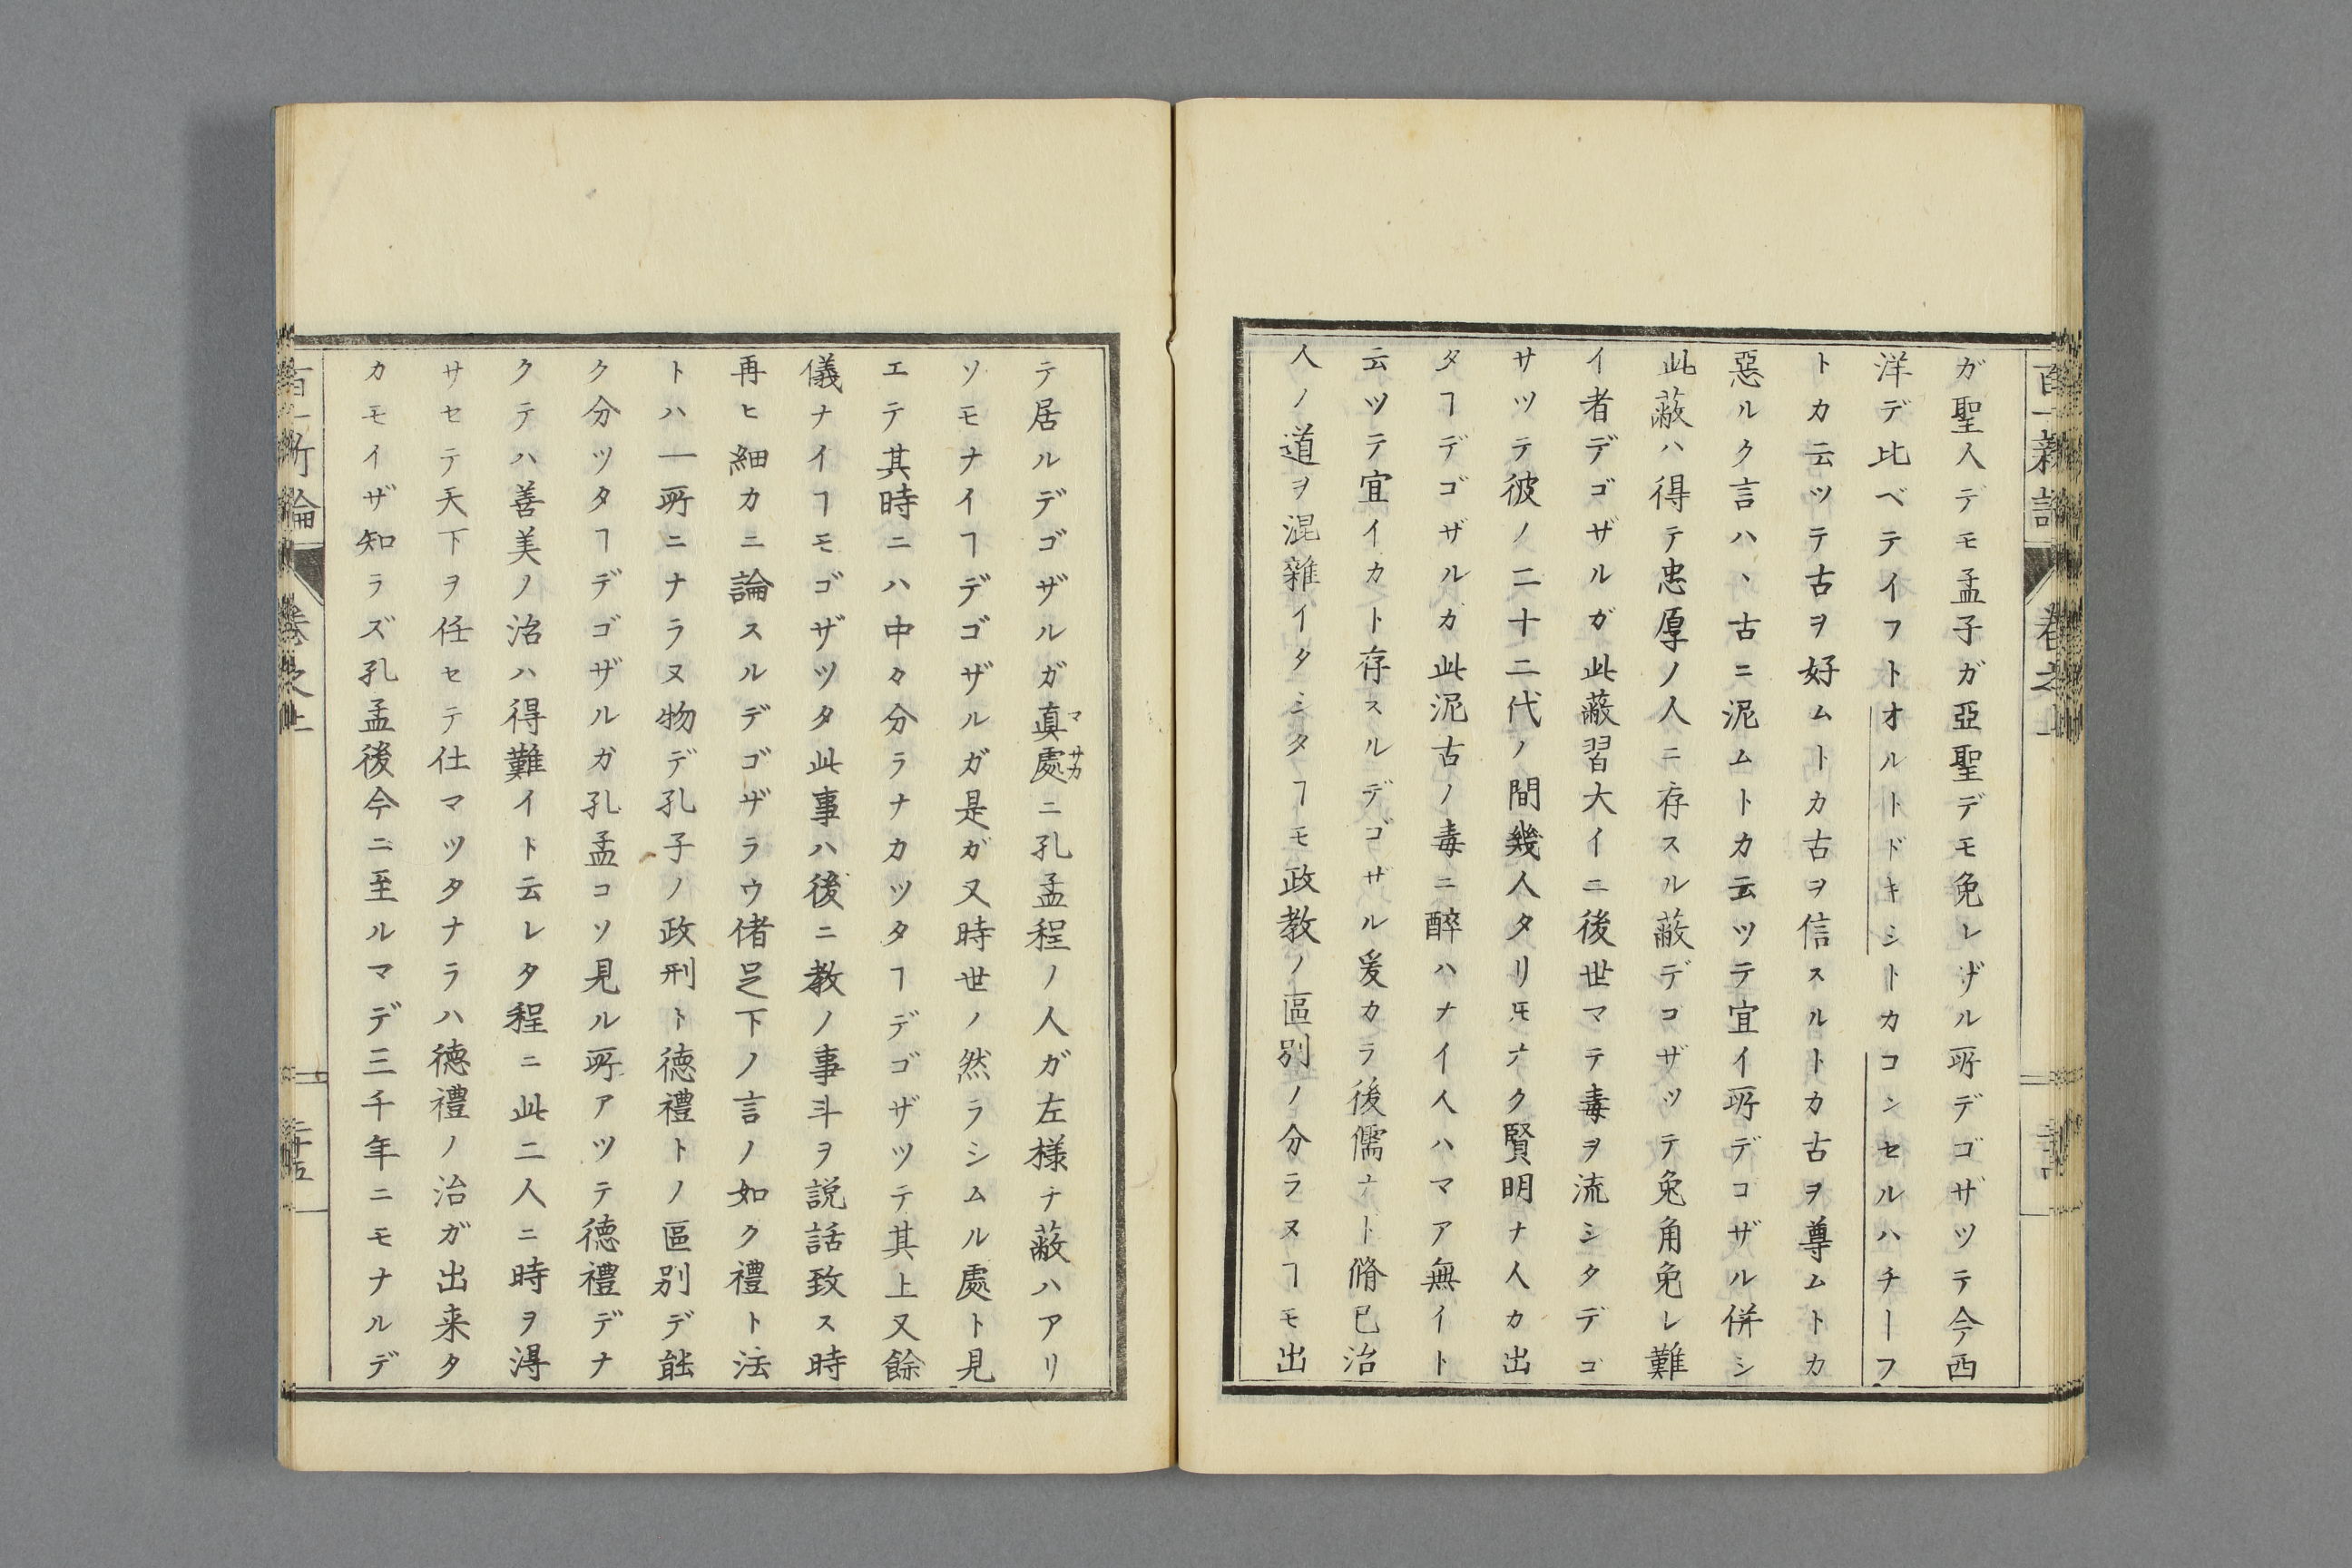 ガ聖人デモ孟子ガ亞聖デモ免レザル所デゴザツテ今西
洋デ比ベテイフトオルトドキシトカコンセルハチーフ
トカ云ツテ古ヲ好ムトカ古ヲ信スルトカ古ヲ尊ムトカ
惡ルク言ハヽ古ニ泥ムトカ云ツテ宜イ所デコザル併シ
此蔽ハ得テ忠厚ノ人ニ存スル蔽デコザツテ兔角免レ難
イ者デゴザルガ此蔽習大イニ後世マテ毒ヲ流シタデゴ
サツテ彼ノ二十二代ノ間幾人タリ𪜈ナク賢明ナ人カ出
タヿデゴザルカ此泥古ノ毒ニ醉ハナイ人ハマア無イト
云ツテ宜イカト存スルデゴサル爰カラ後儒ナト脩已治
人ノ道ヲ混雜イタシタヿモ政教ノ區別ノ分ラヌヿモ出
テ居ルデゴザルガ真處ニ孔孟程ノ人ガ左様ナ蔽ハアリ
マサカ
ソモナイヿデゴザルガ是ガ又時世ノ然ラシムル處ト見
エテ其時ニハ中々分ラナカツタヿデゴザツテ其上又餘
儀ナイヿモゴザツタ此事ハ後ニ教ノ事斗ヲ説話致ス時
再ヒ細カニ論スルデゴザラウ偖足下ノ言ノ如ク禮ト法
トハ一所ニナラヌ物デ孔子ノ政刑ト德禮トノ區別デ能
ク分ツタヿデゴザルガ孔孟コソ見ル所アツテ德禮デナ
クテハ善美ノ治ハ得難イト云レタ程ニ此二人ニ時ヲ得
サセテ天下ヲ任セテ仕マツタナラハ德禮ノ治ガ出来タ
カモイザ知ラズ孔孟後今ニ至ルマデ三千年ニモナルデ
百一新論
卷之上
二十五